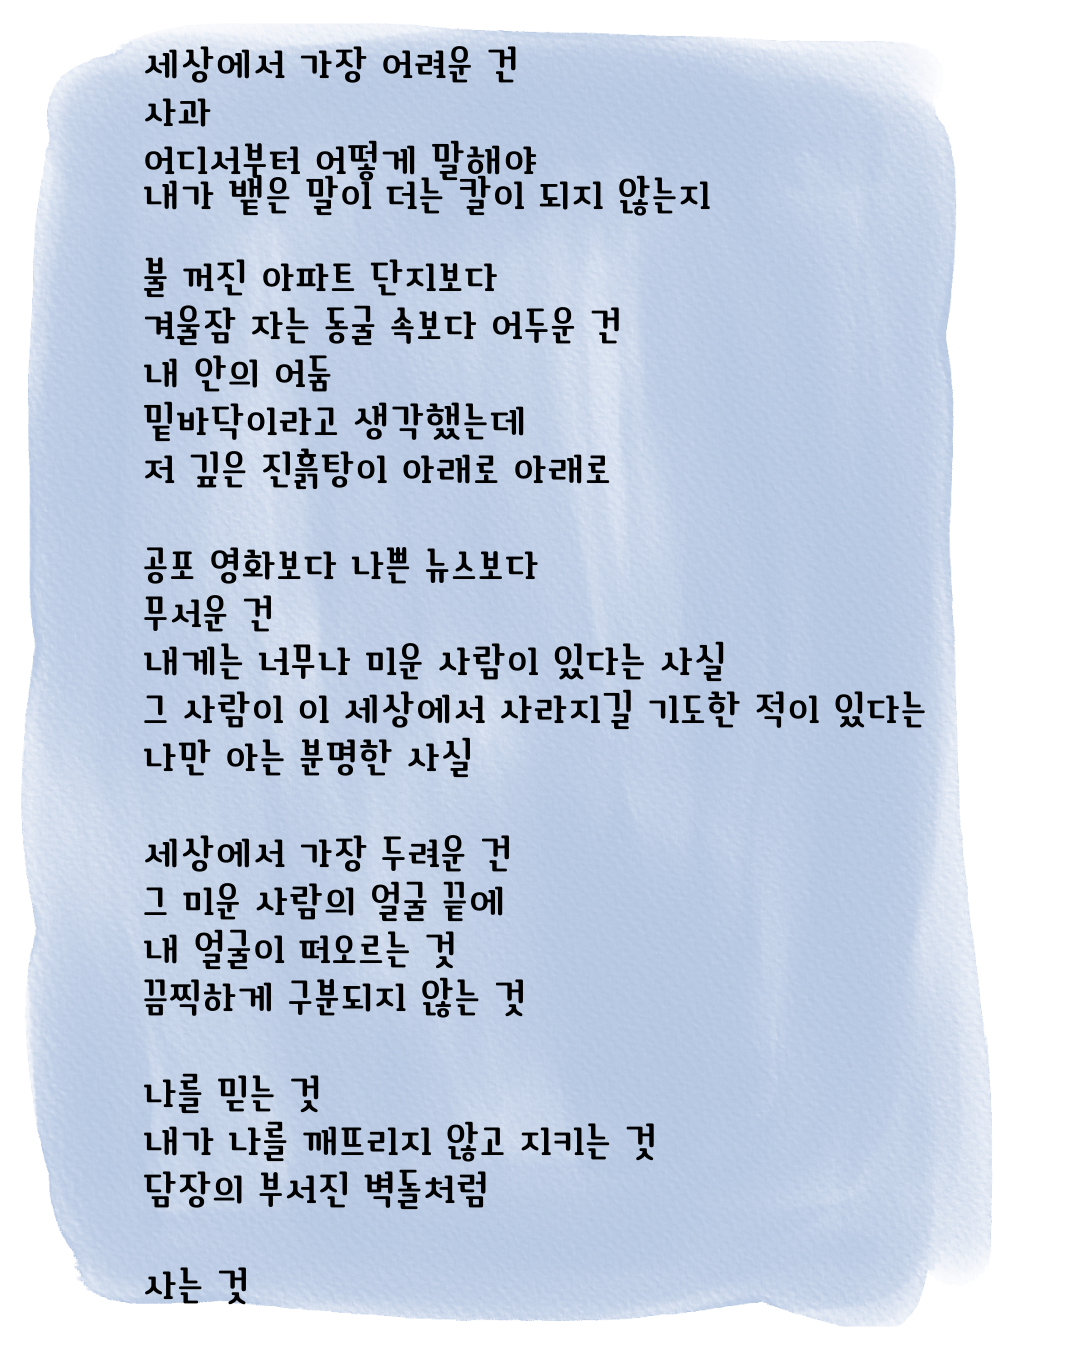 세상에서 가장 어려운 건
사과
어디서부터 어떻게 말해야
내가 뱉은 말이 더는 칼이 되지 않는지
불 꺼진 아파트 단지보다
겨울잠 자는 동굴 속보다 어두운 건
내 안의 어둠
밑바닥이라고 생각했는데
저 깊은 진흙탕이 아래로 아래로
공포 영화보다 나쁜 뉴스보다
무서운 건
내게는 너무나 미운 사람이 있다는 사실
그 사람이 이 세상에서 사라지길 기도한 적이 있다는
나만 아는 분명한 사실
세상에서 가장 두려운 건
그 미운 사람의 얼굴 끝에
내 얼굴이 떠오르는 것
끔찍하게 구분되지 않는 것
나를 믿는 것
내가 나를 깨뜨리지 않고 지키는 것
담장의 부서진 벽돌처럼
사는 것